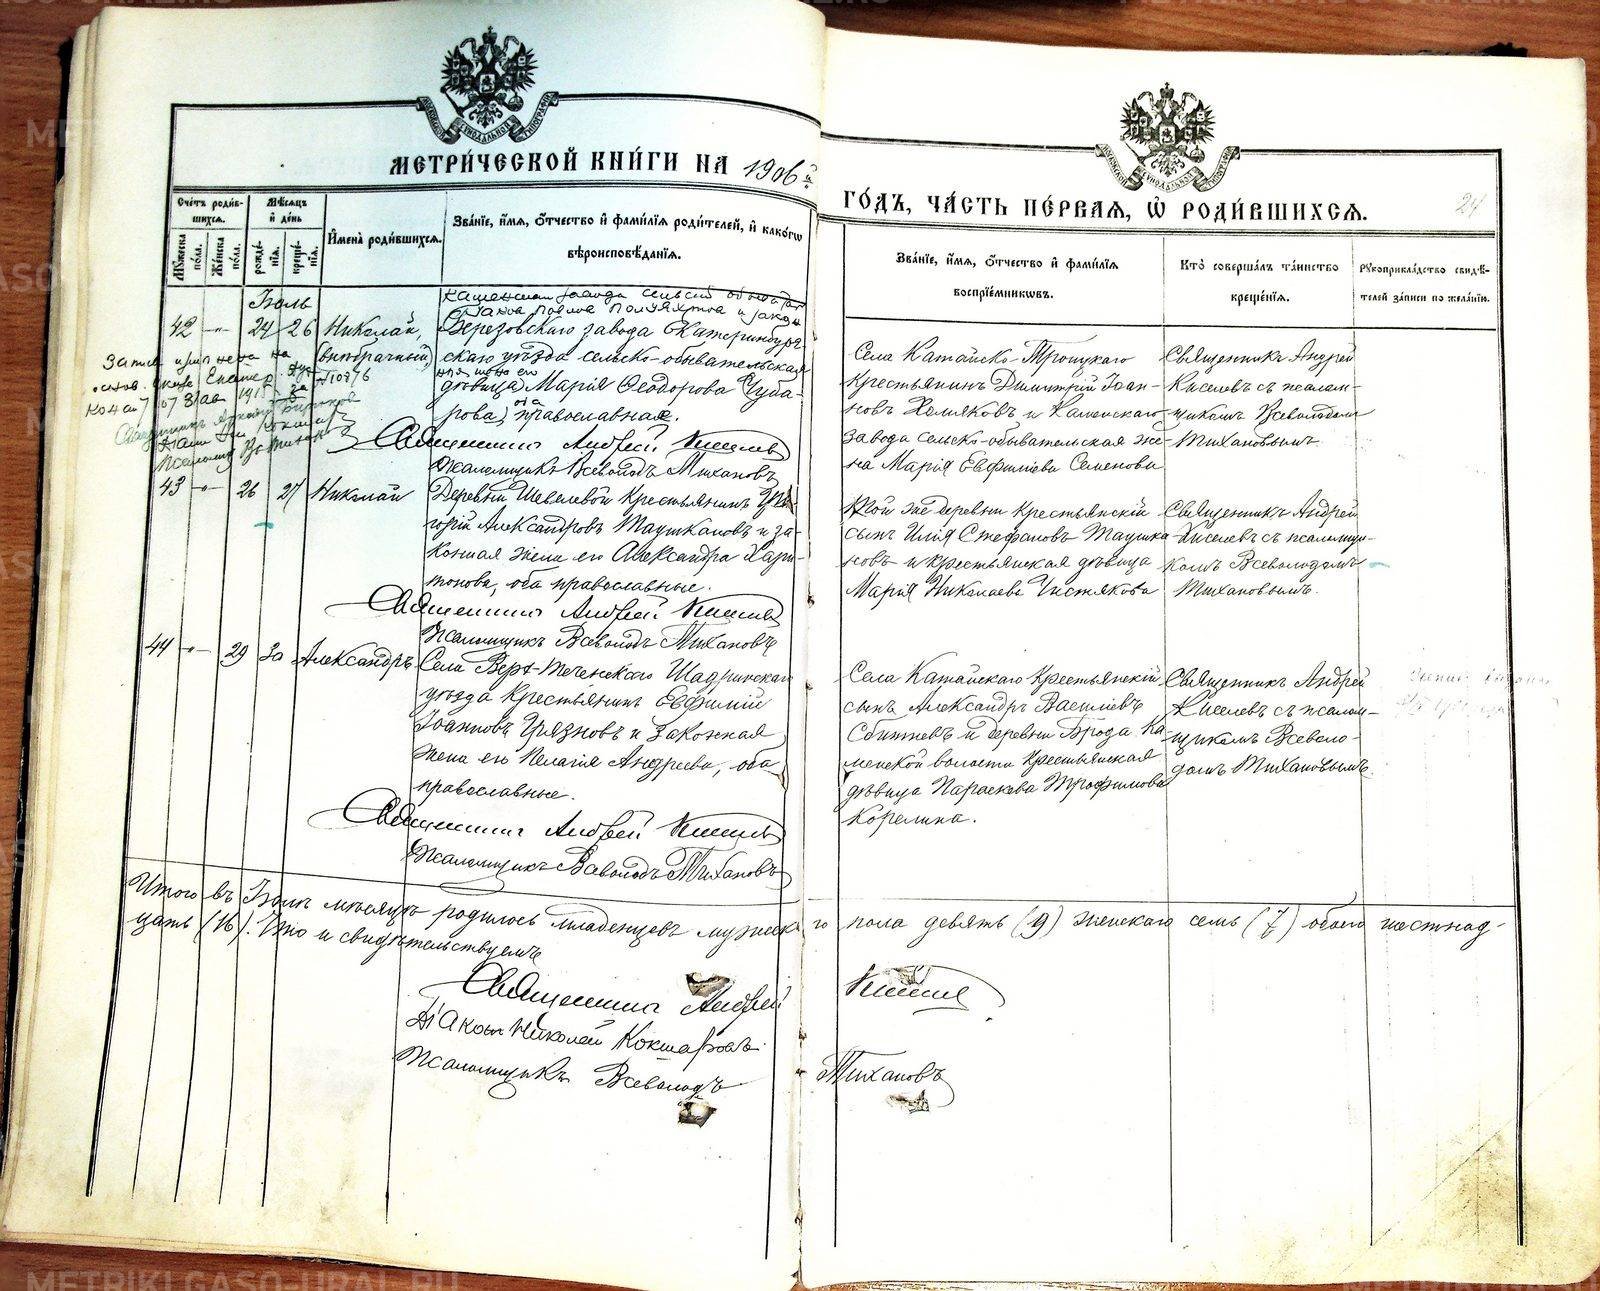 МЕТРИ́ЧЕСКОЙ КНИ́ГИ НА 1906й
ГО́ДЪ, ЧА́СТЬ ПЕ́РВАЯ, Ѡ РОДИ́ВШИХСЯ.
24
Сче́тъ роди́вшихся.
Му́жеска по́ла.
Же́нска по́ла.
Мѣ́сяцъ и́ де́нь
рожде́нїя.
креще́нїя.
И҆мена̀ роди́вшихся.
Зва́нїе, и҆́мя, ѻ҆́тчество и҆ фами́лїя роди́телей, и҆ како́гѡ вѣроисповѣ́данїя.
Зва́нїе, и҆́мя, ѻ҆́тчество и҆ фами́лїя воспрїе́мниковъ.
Кто̀ соверша́лъ та́инство креще́нїя.
Рукоприкла́дство свидѣ́телей за́писи по жела́нїю.
Іюль
42 —„— 24 26 Николай,
(внебрачный)
Березовскаго завода Екатеринбург-
скаго уѣзда сельско-обывательская
дѣвица Марія Ѳеодорова Чуба-
рова, православная.
Священникъ Андрей Киселевъ
Псаломщикъ Всеволодъ Тихановъ
Села Катайско-Троицкаго
крестьянинъ Димитрій Іоан-
новъ Холяковъ и Каменскаго
завода сельско-обывательская же-
на Марія Евфиміева Семенова
Священникъ Андрей
Киселевъ съ псалом-
щикомъ Всеволодомъ
Тихановымъ.
43 —„— 26 27 Николай
Деревни Шевелевой крестьянинъ Гри-
горій Александровъ Таушкановъ и за-
конная жена его Александра Хари-
тонова, оба православные.
Священникъ Андрей Киселевъ
Псаломщикъ Всеволодъ Тихановъ
Той же деревни крестьянскій
сынъ Илія Стефановъ Таушка-
новъ и крестьянская дѣвица
Марія Николаева Чистякова
Священникъ Андрей
Киселевъ съ псаломщи-
комъ Всеволодомъ
Тихановымъ.
44 —„— 29 30 Александръ
Села Верх-Теченскаго Шадринскаго
уѣзда крестьянинъ Евфимій
Іоанновъ Грязновъ и законная
жена его Пелагія Андреева, оба
православные.
Священникъ Андрей Киселевъ
Псаломщикъ Всеволодъ Тихановъ
Села Катайскаго крестьянскій
сынъ Александръ Василіевъ
Сбитневъ и деревни Брода Ка-
менской волости крестьянская
дѣвица Параскева Трофимова
Корелина.
Священникъ Андрей
Киселевъ съ псалом-
щикомъ Всеволо-
домъ Тихановымъ.
Итого въ Іюлѣ мѣсяцѣ родилось младенцевъ мужескаго пола девять (9) женскаго семь (7) обоего шестнад-
цать (16). Что и свидѣтельствуемъ
Священникъ Андрей Киселевъ
Діаконъ Николай Кокшаровъ
Псаломщикъ Всеволодъ Тихановъ
METRIKI.GASO-URAL.RU